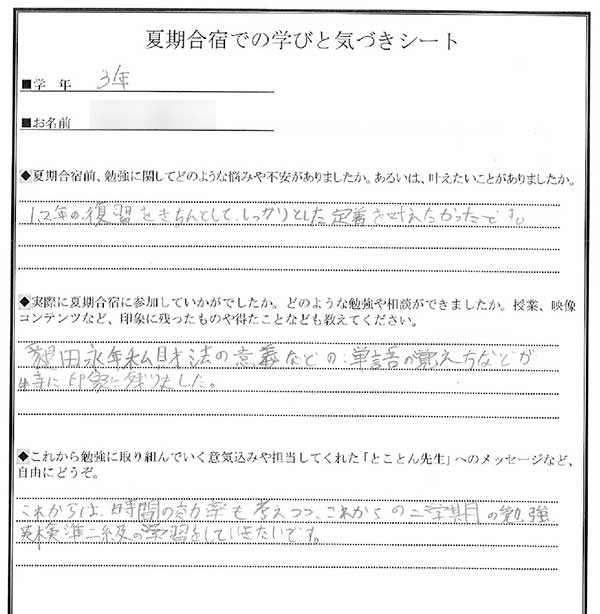 夏期合宿での学びと気づきシート
■学 年 3年
■お名前
◆夏期合宿前、勉強に関してどのような悩みや不安がありましたか。あるいは、叶えたいことがありましたか。
12年の復習をきちんとして、しっかりとした定着を叶えたかったです。
◆実際に夏期合宿に参加していかがでしたか。どのような勉強や相談ができましたか。授業、映像
コンテンツなど、印象に残ったものや得たことなども教えてください。
墾田永年私財法の意義などの、単語の覚え方などが
特に印象に残りました。
◆これから勉強に取り組んでいく意気込みや担当してくれた「とことん先生」へのメッセージなど、
自由にどうぞ。
これからは、時間の も考えつつ、これからの二学期の勉強、
英検準二級の学習をしていきたいです。